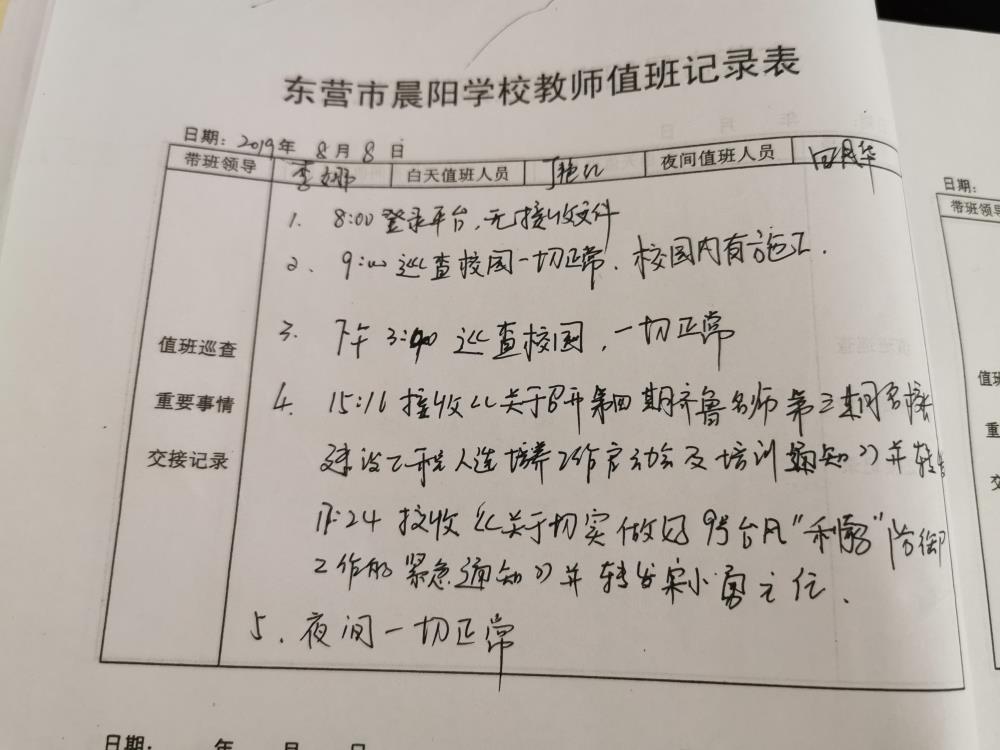 东营市晨阳学校教师值班记录表
日期：2019年 8月8日
带班领导 李娜 白天值班人员 夜间值班人员 田月华
1. 8:00登录平台，无接收文件
2. 9:00巡查校园一切正常，校园内有施工.
3. 下午3:00巡查校园，一切正常
值班巡查
重要事情
交接记录
4. 15:16接收《关于召开第四期齐鲁名师第三期名校长
建设工程人选培养工作启动会及培训通知》并转发
17:24接收《关于切实做好9号台风“利奇马”防御
工作的紧急通知》并转发宋小勇主任.
5. 夜间一切正常
日期： 年 月 日
日期：
带班领导